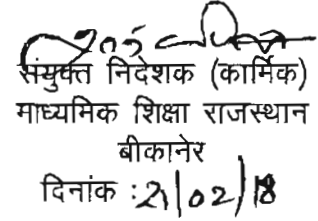 संयुक्त निदेशक (कार्मिक)
माध्यमिक शिक्षा राजस्थान
बीकानेर
दिनांक :21/02/18